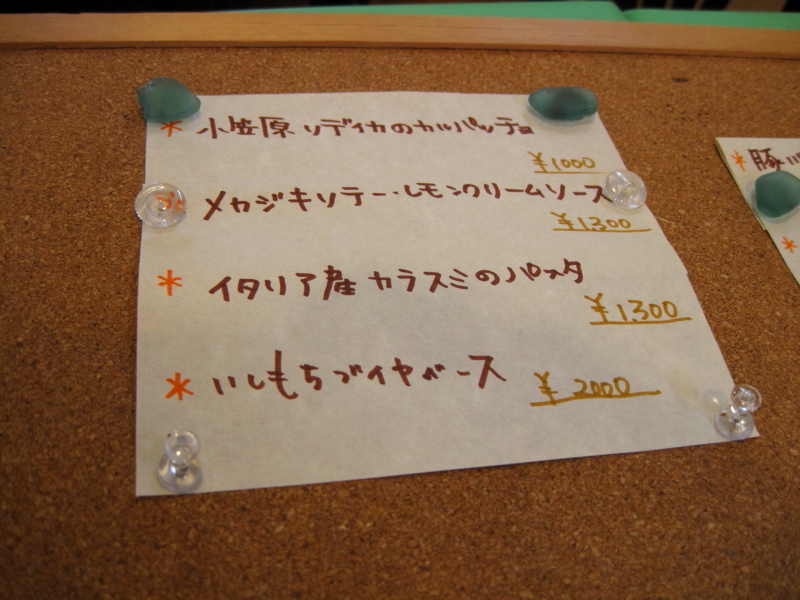 * 小笠原ソデイカのカルパッチョ
¥1000
* メカジキソテー・レモンクリームソース
¥1.300
* イタリア産カラスミのパスタ
¥1.300
* いしもちブイヤベース
¥2000
* 豚
*